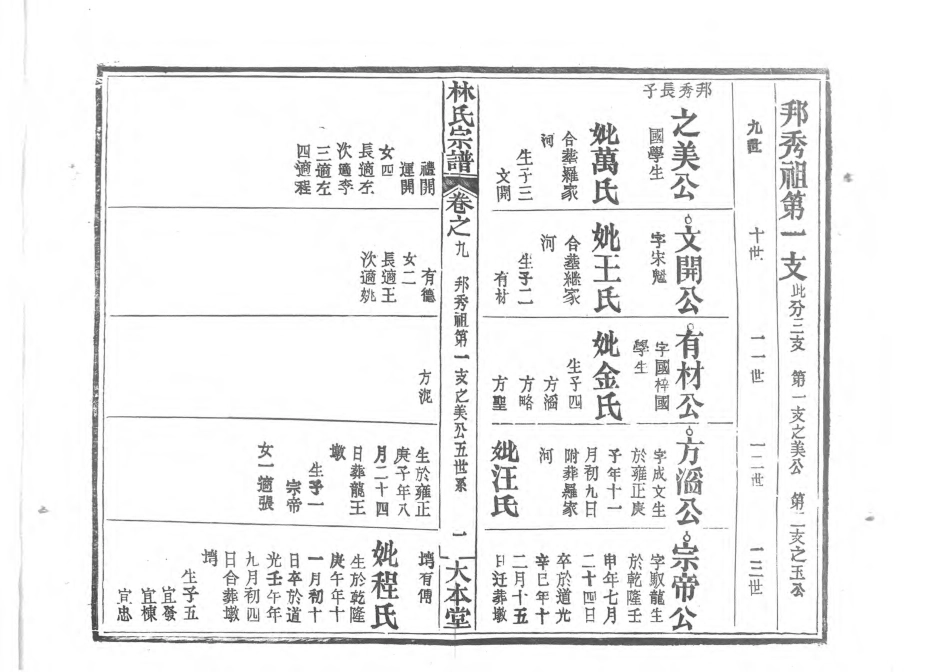 邦秀祖第一支
此分三支 第一支之美公 第二支之玉公
九世
十世
一一世
一二世
一三世
邦秀長子
之美公
國學生
妣萬氏
合塟羅家
河
生子三
文開
文開公
字宋魁
妣王氏
合塟繼家
河
生子二
有材
有材公
字國梓國
學生
妣金氏
生子四
方滔
方略
方聖
方滔公
字成文生
於雍正庚
子年十一
月初九日
附葬羅家
河
妣汪氏
宗帝公
字馭龍生
於乾隆壬
申年七月
二十四日
卒於道光
辛巳年十
二月十五
日迁葬墩
林氏宗譜
卷之九 邦秀祖第一支之美公五世系 一
大本堂
禮開
運開
女四
長適左
次適李
三適左
四適程
有德
女二
長適王
次適姚
方泥
生於雍正
庚子年八
月二十四
日葬龍王
墩
生子一
宗帝
女一適張
塆有傳
妣程氏
生於乾隆
庚午年十
一月初十
日卒於道
光壬午年
九月初四
日合葬墩
塆
生子五
宜發
宜棟
宜忠